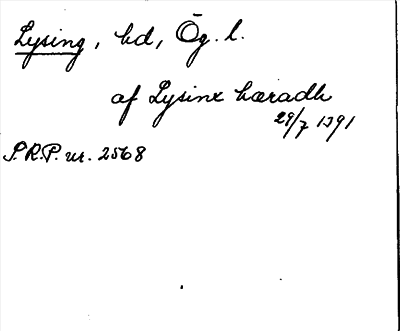 Lysing, hd, Ög. l.
af Lysinx hæradh
29/7 1391
S.R.P. nr. 2568